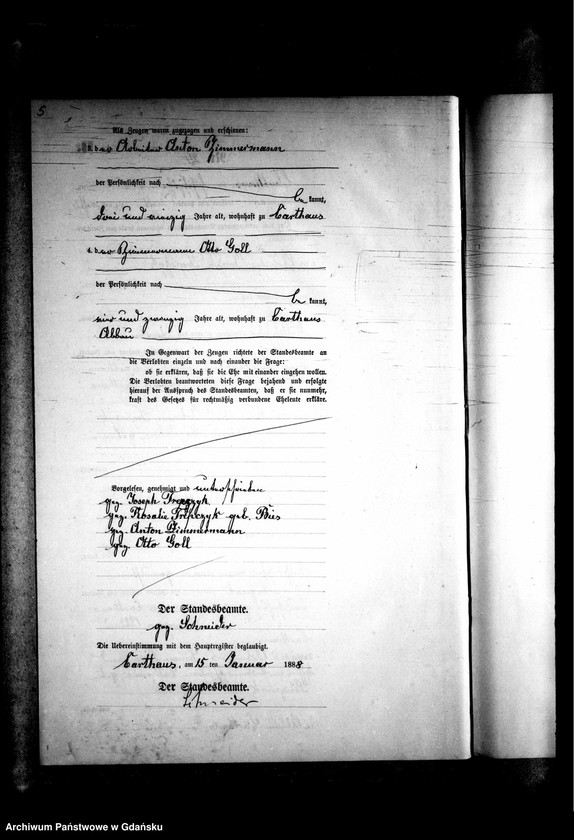 5
Als Zeugen waren zugezogen und erschienen:
der Arbeiter Anton Zimmermann
der Persönlichkeit nach
be kannt,
und Jahre alt, wohnhaft zu Carthaus
der Otto Goll
der Persönlichkeit nach
be kannt,
vier und zwanzig Jahre alt, wohnhaft zu Carthaus
Abbau
In Gegenwart der Zeugen richtete der Standesbeamte an
die Verlobten einzeln und nach einander die Frage:
ob sie erklären, daß sie die Ehe mit einander eingehen wollen.
Die Verlobten beantworteten diese Frage bejahend und erfolgte
hierauf der Ausspruch des Standesbeamten, daß er sie nunmehr,
kraft des Gesetzes für rechtmäßig verbundene Eheleute erkläre.
Vorgelesen, genehmigt und unterschrieben
gez. Joseph
gez. Rosalie geb.
gez. Anton Zimmermann
gez. Otto Goll
Der Standesbeamte.
gez. Schneider
Die Uebereinstimmung mit dem Hauptregister beglaubigt.
Carthaus, am 15 ten Januar 1888
Der Standesbeamte.
Schneider
Archiwum Państwowe w Gdańsku